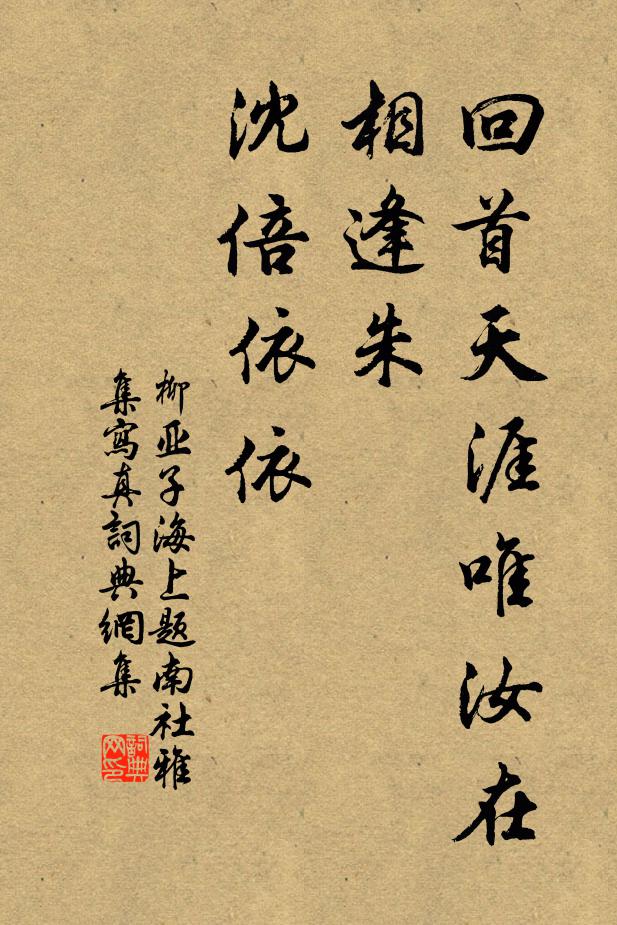 回首天涯唯汝在
相逢朱
沈倍依依
柳亚子海上题南社雅
集寫真詞典網集
詞典
网印